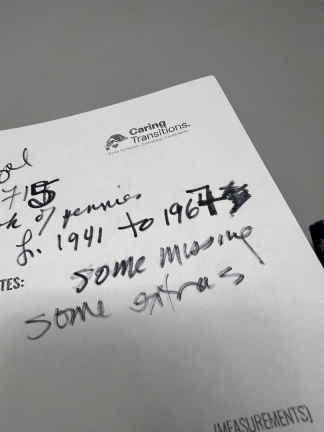 Caring
Transitions.
715
of pennies
1941 to 1967
TES: some missing
some extras
(MEASUREMENTS)